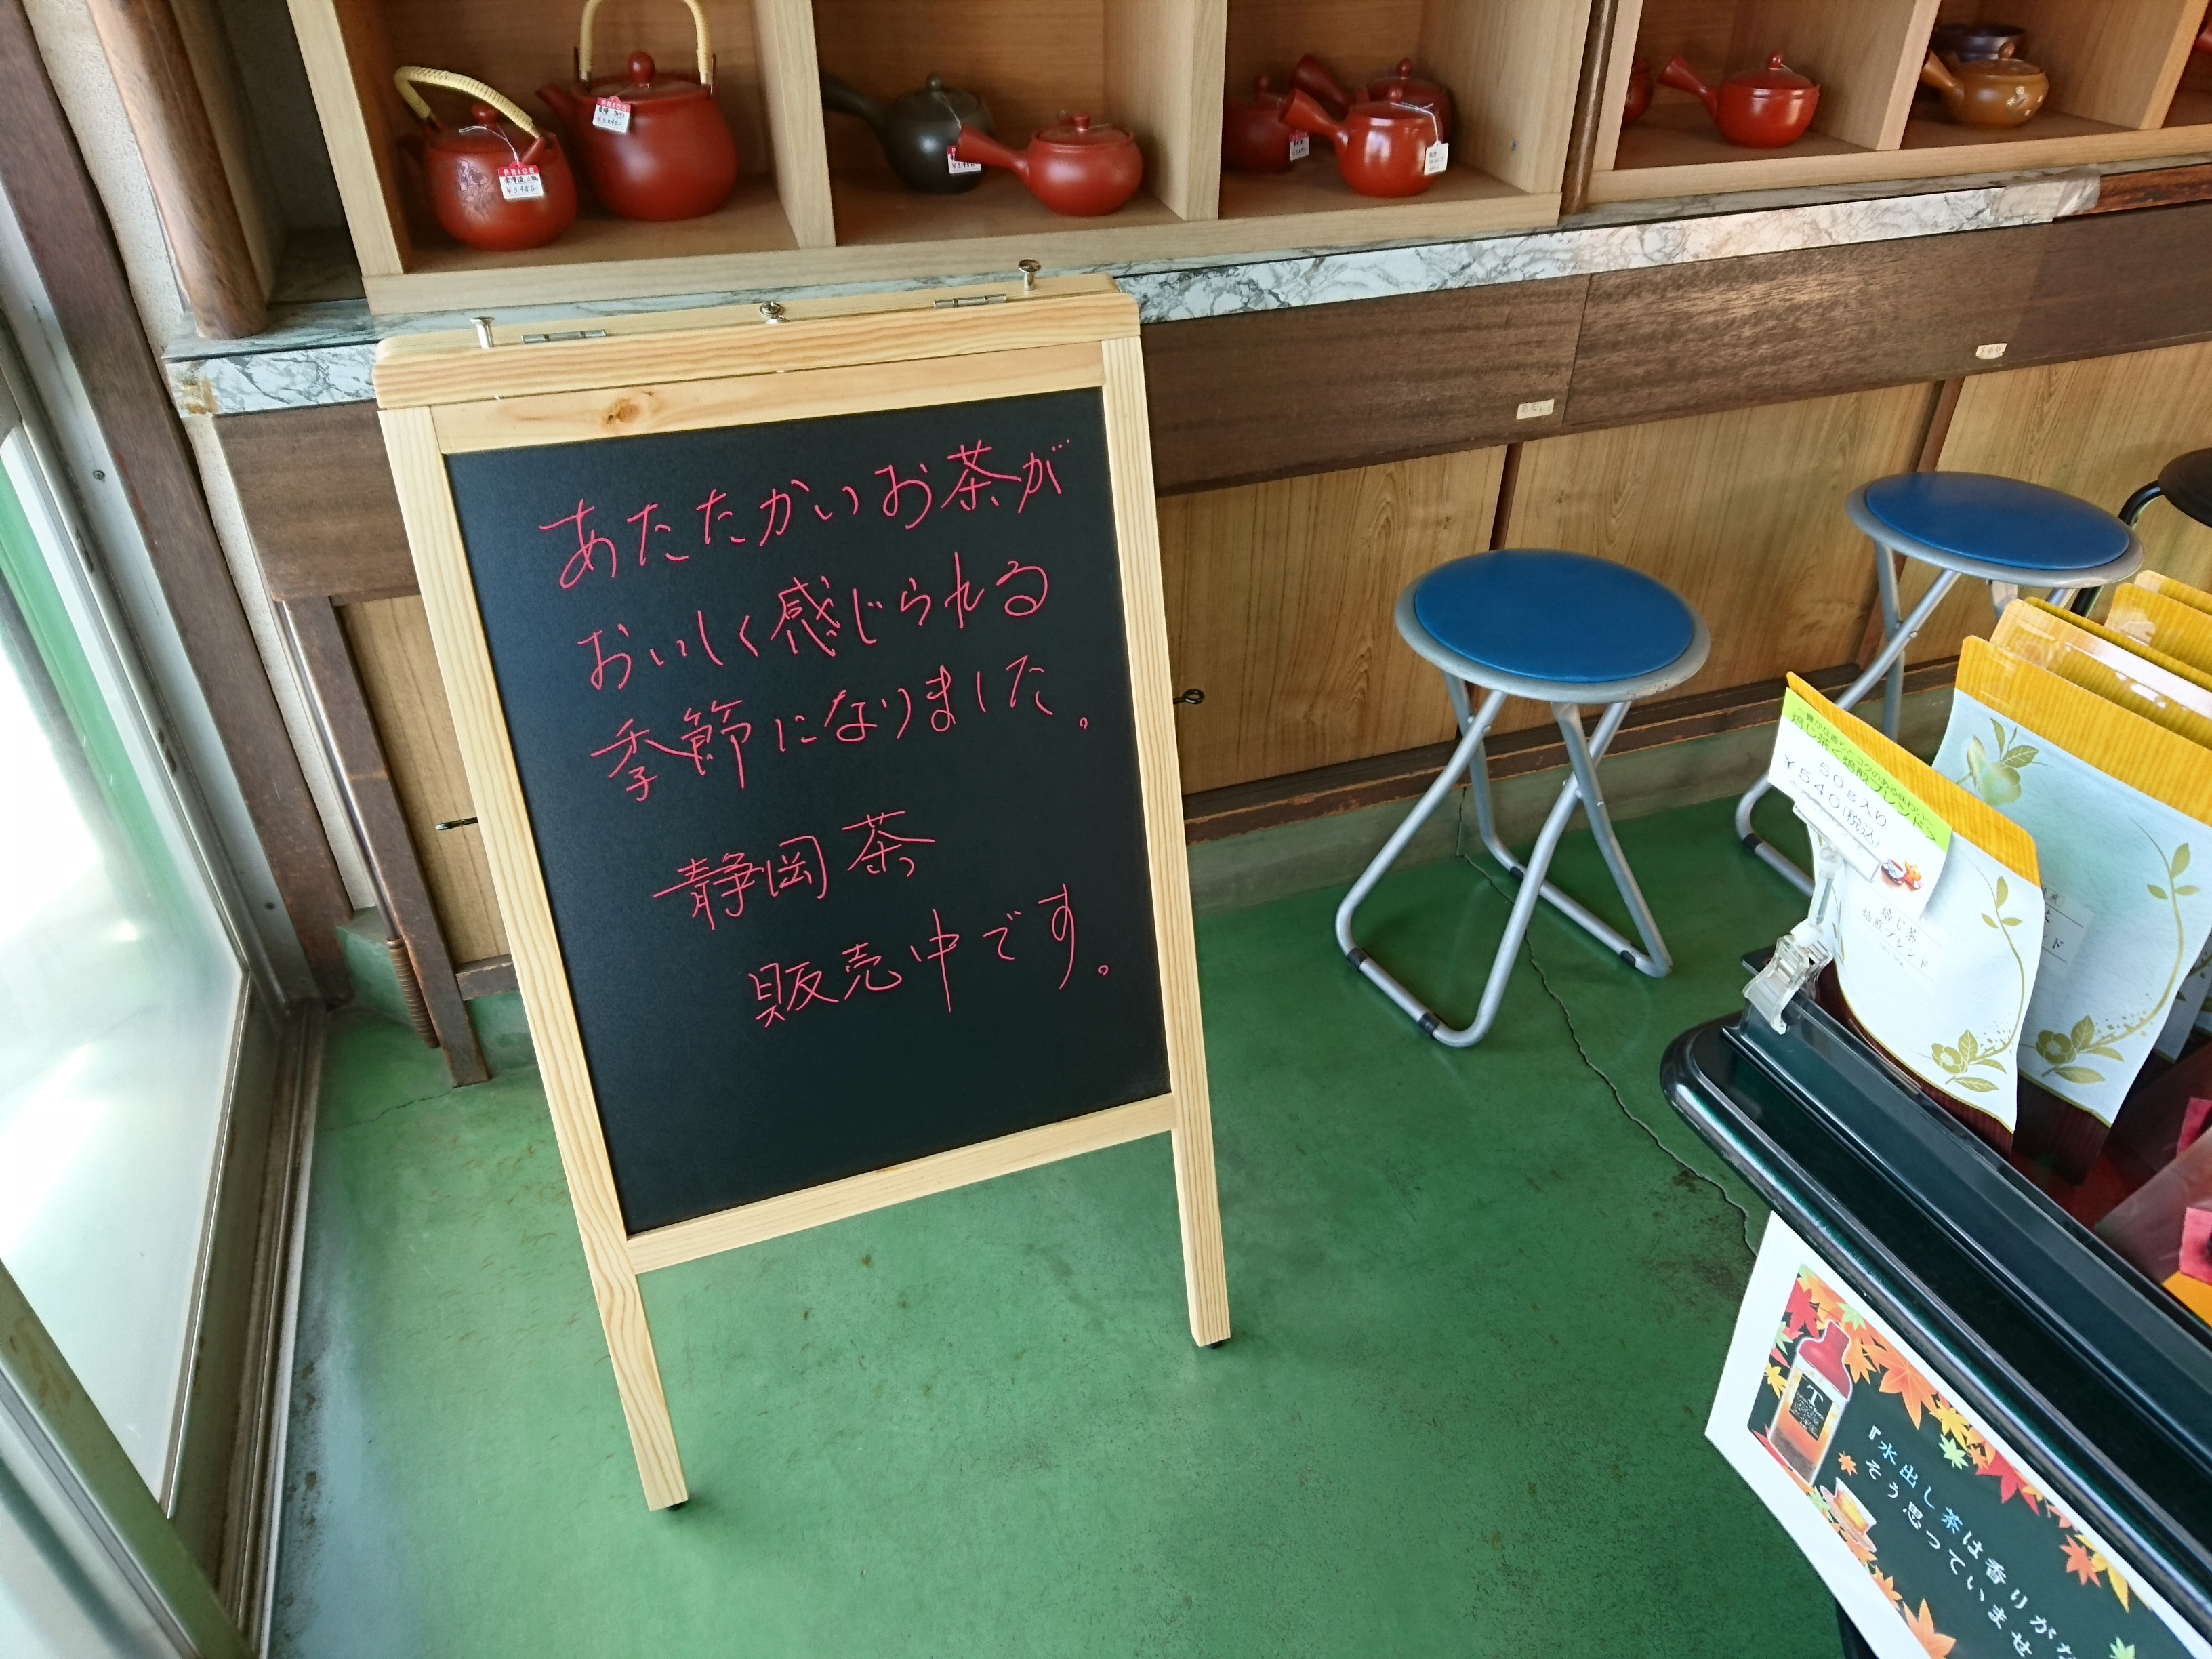 PRICE
PRICE
あたたかいお茶が
おいしく感じられる
季節になりました。
静岡茶
販売中です。
～豊かな香りとコクのある味わい～
焙じ茶＜焙煎ブレンド＞
50g入り
￥540(税込)
焙じ茶
焙煎ブレンド
ンド
T
『水出し茶は香りがな
そう思っていませ